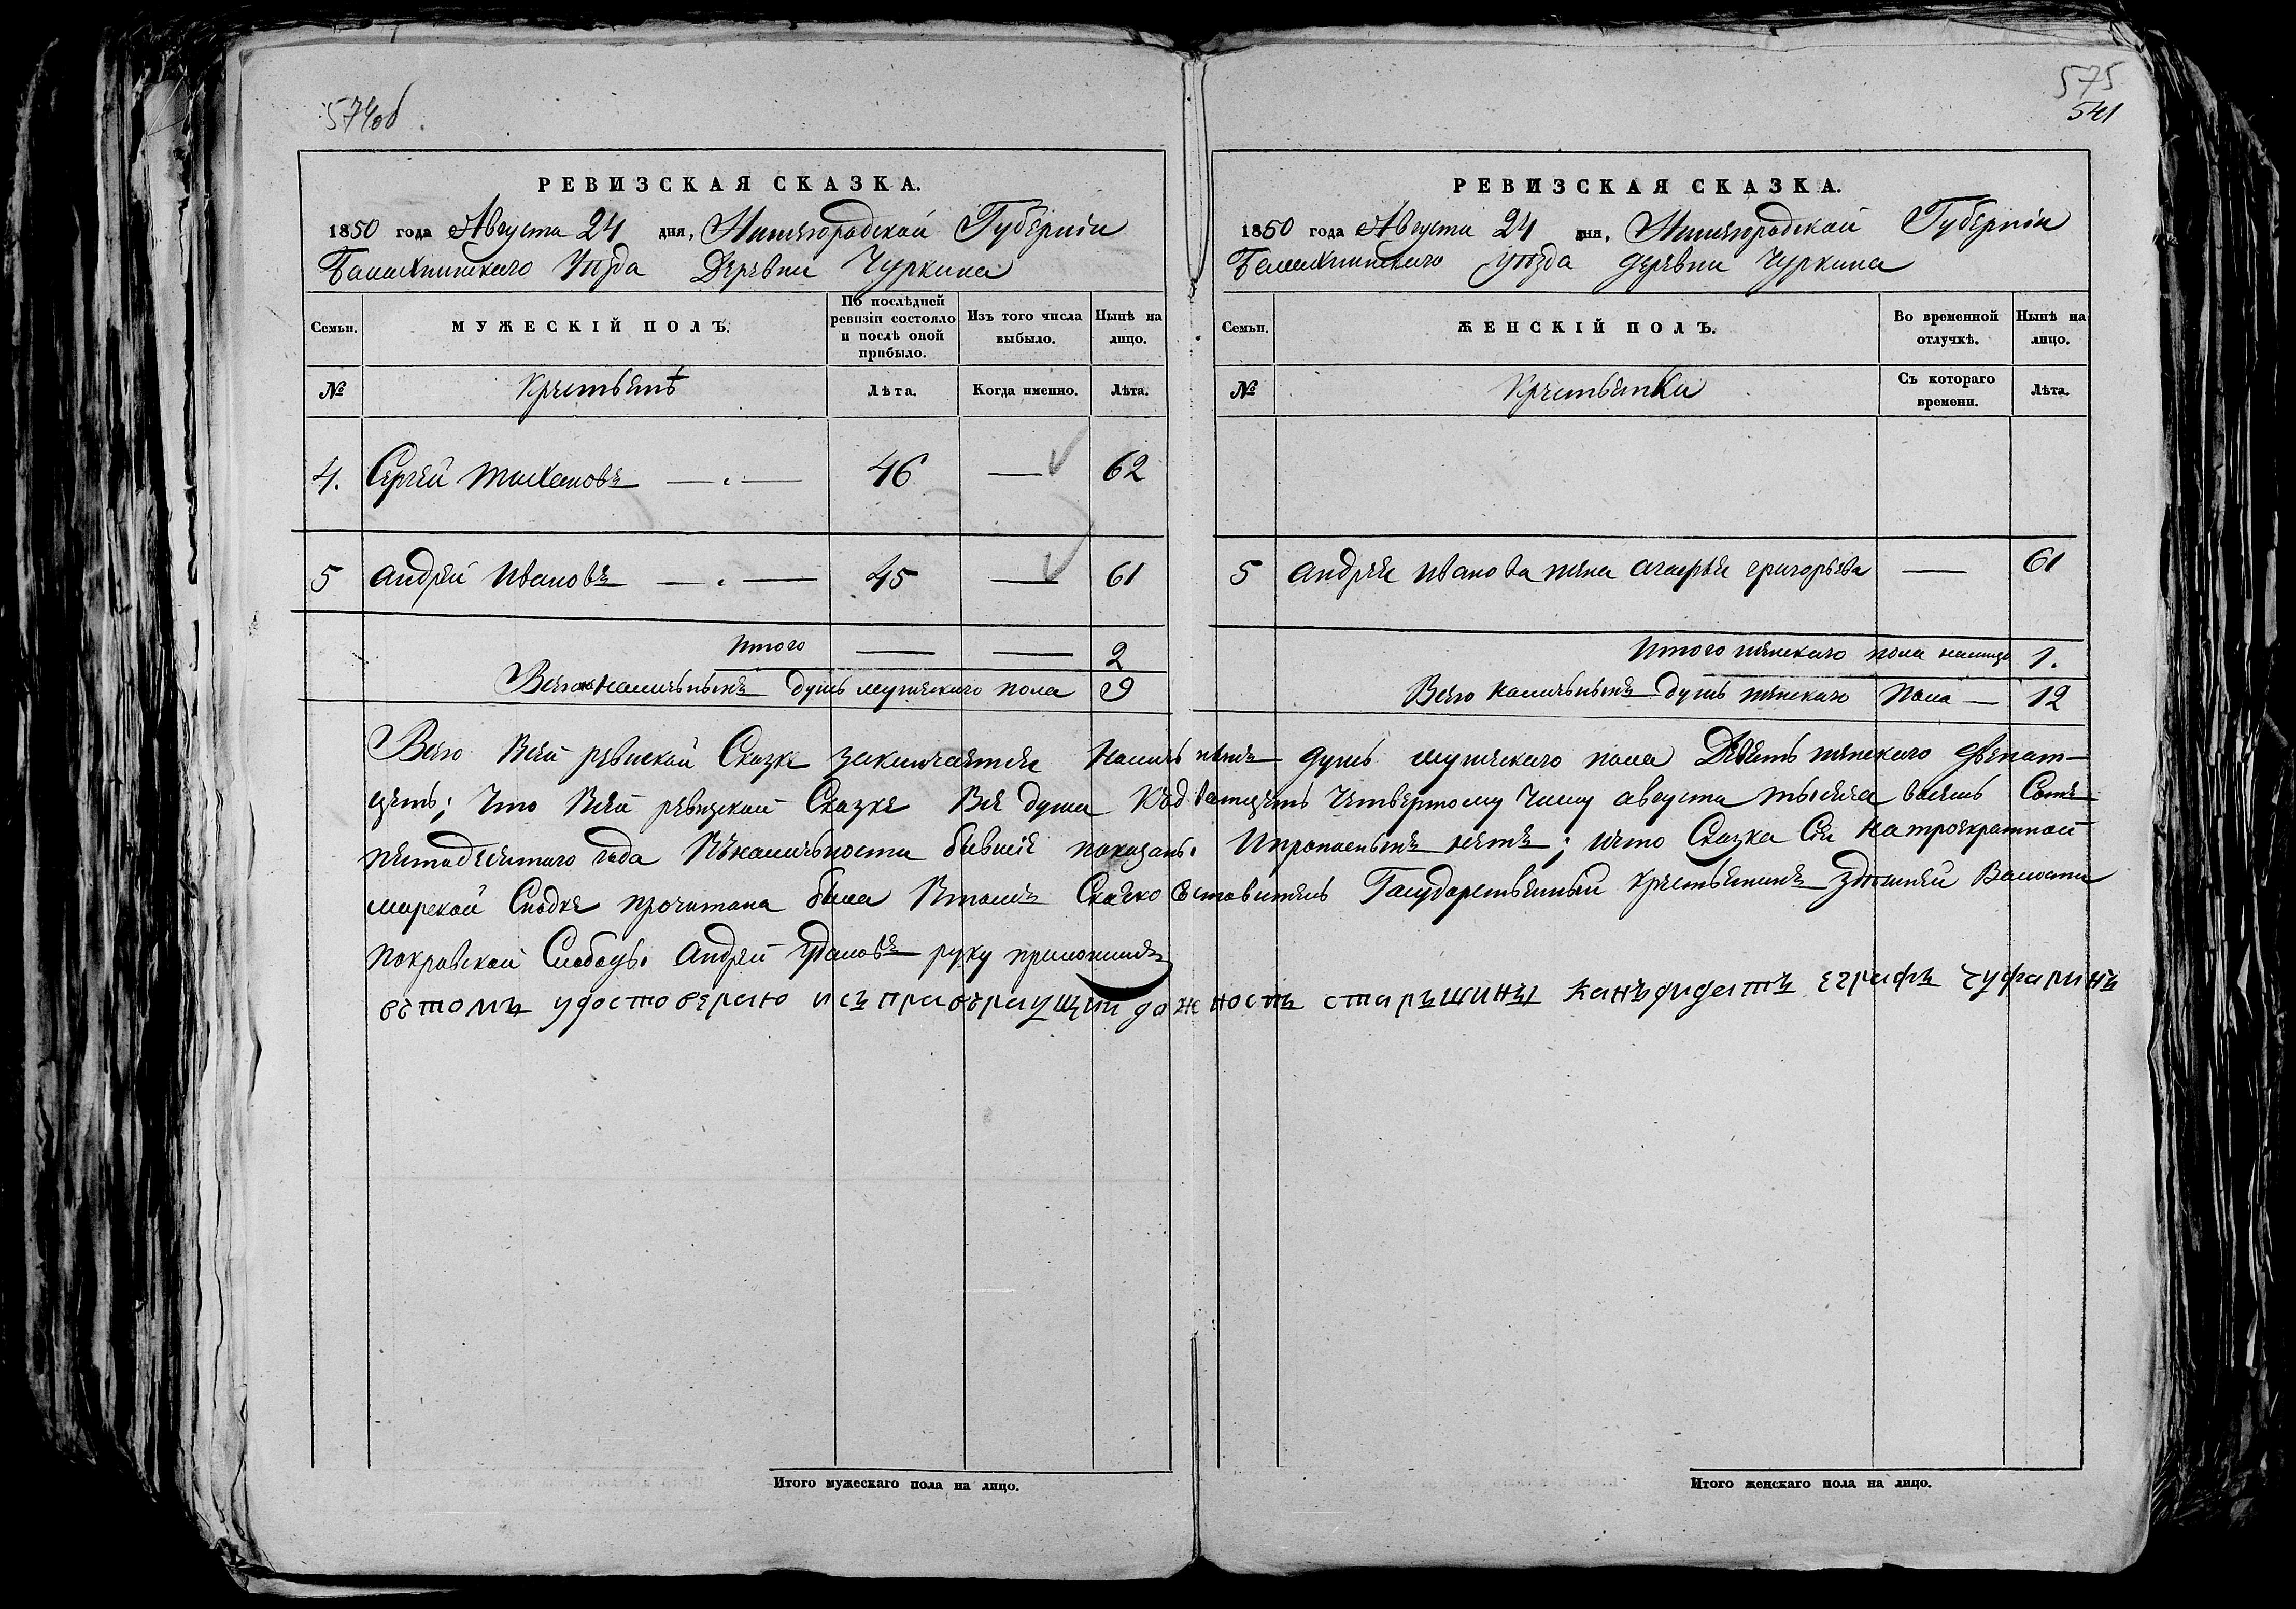 574об
РЕВИЗСКАЯ СКАЗКА.
1850 года Августа 24 дня, Нижегородской Губерніи
Балахнинскаго Уѣзда Деревни Чуркина
Семьи.
МУЖЕСКІЙ ПОЛЪ.
По послѣдней ревизіи состояло и послѣ оной прибыло.
Изъ того числа выбыло.
Нынѣ на лицо.
№
Крестьянѣ
Лѣта.
Когда именно.
Лѣта.
4. Сергей Тихановъ — 46 — 62
5 Андрей Ивановъ — 45 — 61
Итого — — 2
Всего наличьныхъ душь мужескаго пола 9
575
541
РЕВИЗСКАЯ СКАЗКА.
1850 года Августа 24 дня, Нижегородской Губерніи
Балахнинскаго уѣзда деревни Чуркина
Семьи.
ЖЕНСКІЙ ПОЛЪ.
Во временной отлучкѣ.
Нынѣ на лицо.
№
Крестьянки
Съ котораго времени.
Лѣта.
5 Андрея Иванова жена Агафья григорьева — 61
Итого женскаго пола налицо 1.
Всего наличьныхъ душь женскаго пола — 12
Всего Всей ревиской Сказке заключается Наличьныхъ душь мужескаго пола Девять женскаго двенат-
цеть; Что Всей ревизской Сказке Все души Къдватцеть Четвертому Числу августа тысяча восемь Сотъ
пятидесятаго года Въналичьности бывшіе показаны. Ипрописныхъ нетъ; ичто Сказка Сія Натроекратной
мирской Сходке прочитана была Втомъ Государственный крестьянинъ здѣшней Волости
покровской Слободы. Андрей руку приложилъ
вѣтомъ удостоверяю исправъряущий должность старъшины канъдидатъ еграфъ чуфаринъ
Итого мужескаго пола на лицо.
Итого женскаго пола на лицо.